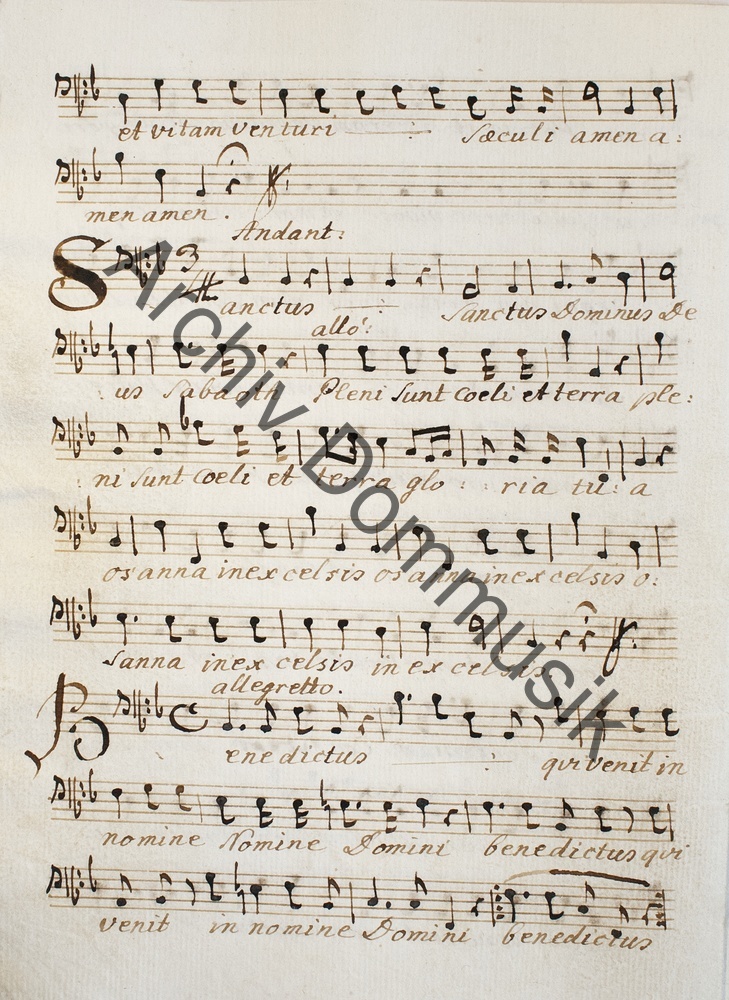 et vitam venturi sæculi amen a:
men amen.
Andant:
Sanctus Sanctus Dominus De
allo:
us Sabaoth Pleni sunt Coeli et terra ple:
ni sunt Coeli et terra glo: ria tu: a
osanna in excelsis osanna in excelsis o:
sanna in excelsis in excelsis
allegretto.
Benedictus qui venit in
nomine Nomine Domini benedictus qui
venit in nomine Domini benedictus
Archiv Dommusik